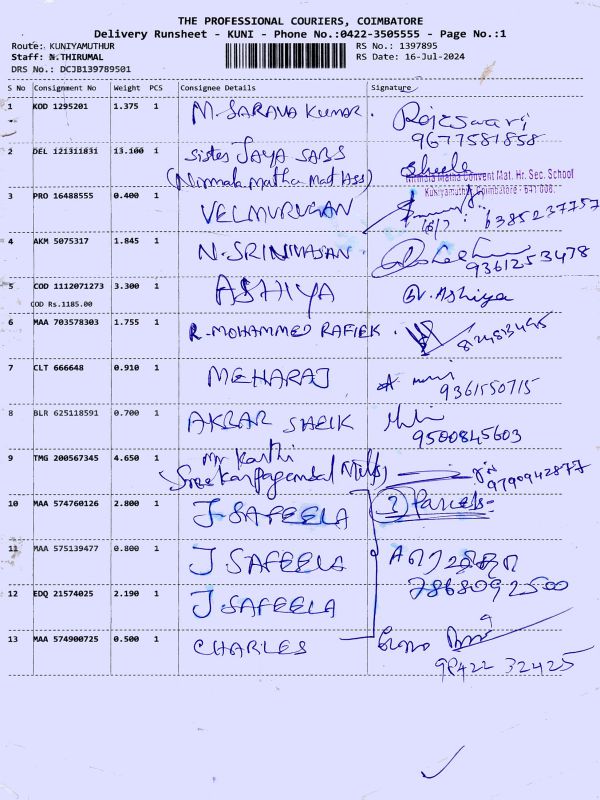 THE PROFESSIONAL COURIERS, COIMBATORE
Delivery Runsheet - KUNI - Phone No.:0422-3505555 - Page No.:1
Route: KUNIYAMUTHUR RS No.: 1397895
Staff: N.THIRUMAL RS Date: 16-Jul-2024
DRS No.: DCJB139789501
S No Consignment No Weight PCS Consignee Details Signature
1 KOD 1295201 1.375 1 M. SARAVA KUMAR. Rajeswari
9677581858
2 DEL 121311831 13.100 1 Sister JAYA SABS Sheela
(Nirmala Matha Mat Hss) Nirmala Matha Convent Mat. Hr. Sec. School
Kuniyamuthur, Coimbatore - 641 008.
3 PRO 16488555 0.400 1 VELMURUGAN 16/7 6385237757
4 AKM 5075317 1.845 1 N. SRINIVASAN.
9361253478
5 COD 1112071273 3.300 1 ASHIYA Ashiya
COD Rs.1185.00
6 MAA 703578303 1.755 1 R. MOHAMMED RAFIEK.
7 CLT 666648 0.910 1 MEHARAJ
9361550715
8 BLR 625118591 0.700 1 AKBAR SHEIK
9500845603
9 TMG 200567345 4.650 1 Mr Karthi
9790942877
10 MAA 574760126 2.800 1 J. SAFEELA 3 Parcels
11 MAA 575139477 0.800 1 J SAFEELA
7868092500
12 EDQ 21574025 2.190 1 J. SAFEELA
13 MAA 574900725 0.500 1 CHARLES
98422 32425